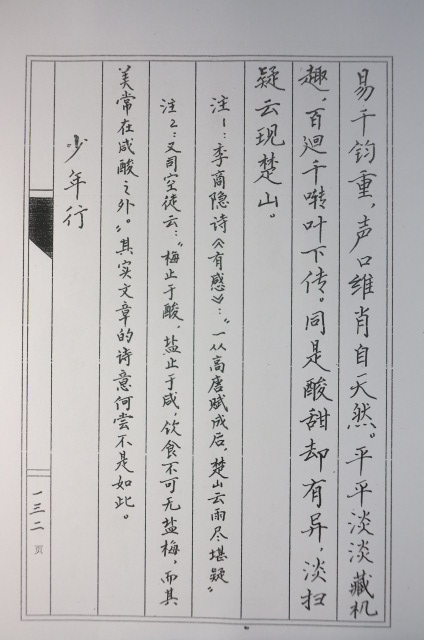 易千钧重，声口维肖自天然。平平淡淡藏机
趣，百迴千啭叶下传。同是酸甜却有异，淡扫
疑云现楚山。
注1：李商隐诗《有感》：“一从高唐赋成后，楚山云雨尽堪疑”
注2：又司空徒云：“梅止于酸，盐止于咸，饮食不可无盐梅，而其
美常在咸酸之外”。其实文章的诗意何尝不是如此。
少年行
一三二页